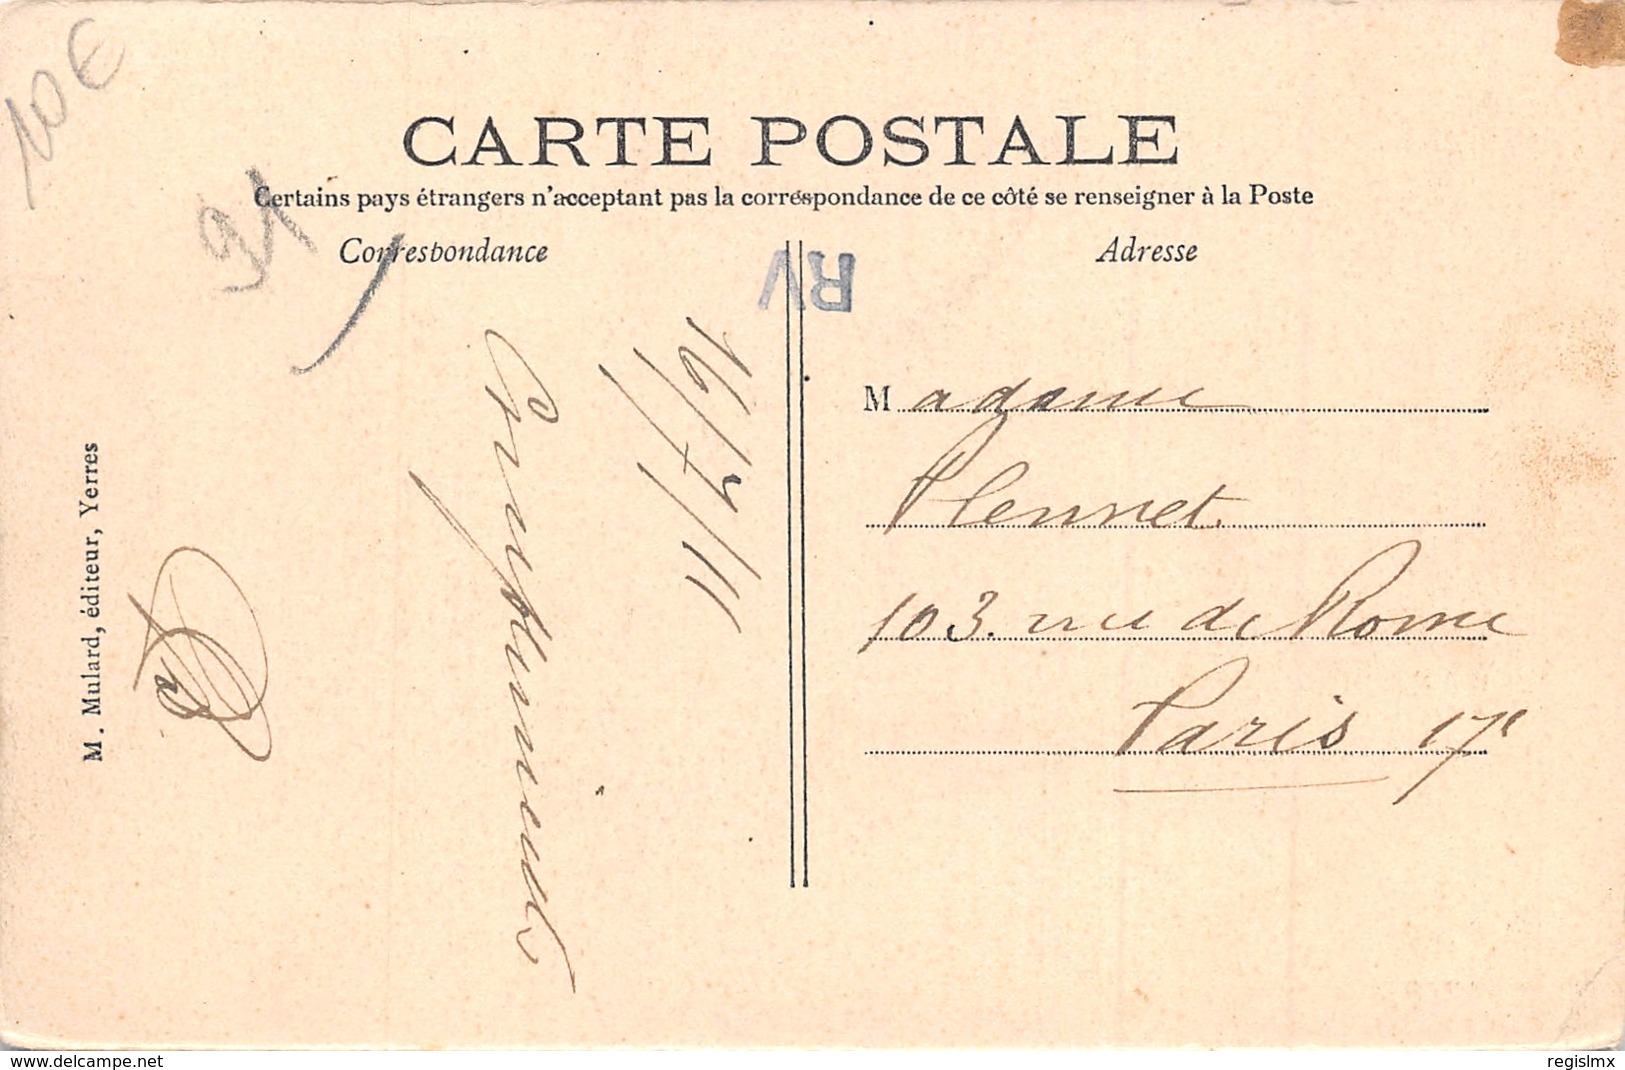 10€
91
CARTE POSTALE
Certains pays étrangers n'acceptant pas la correspondance de ce côté se renseigner à la Poste
Correspondance
Adresse
RV
16/7/11
Compliments
M. Mulard, éditeur, Yerres
Madame
Plennet
103. rue de Rome
Paris 17e
www.delcampe.net
regislmx